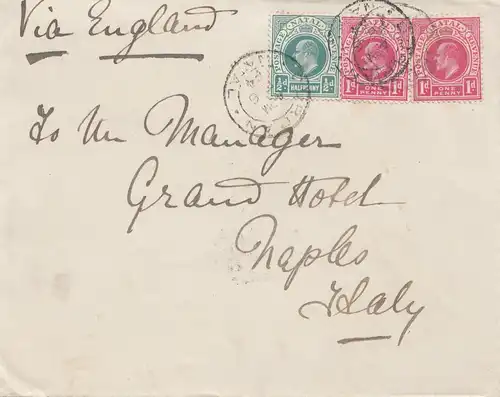 Via England
POSTAGE NATAL REVENUE
½d HALFPENNY ½d
POSTAGE NATAL REVENUE
1d ONE PENNY 1d
POSTAGE NATAL REVENUE
1d ONE PENNY 1d
To the Manager
Grand Hotel
Naples
Italy